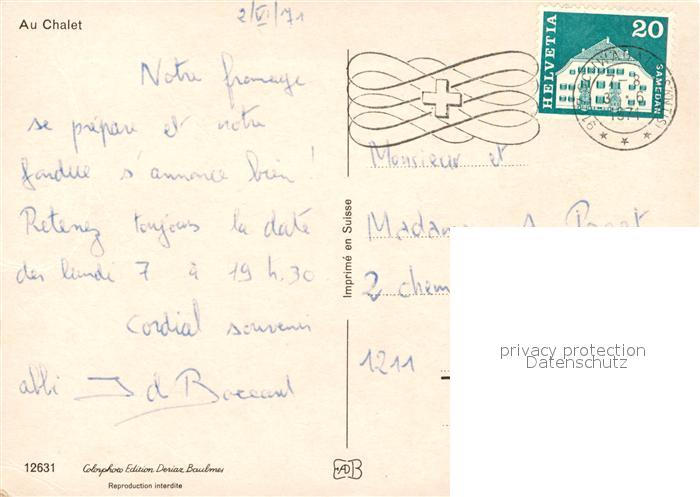 Au Chalet
2/VI/71
Notre fromage
se prépare et notre
fondue s'annonce bien !
Retenez toujours la date
des lundi 7 à 19 h.30
Cordial souvenir
abbé J d Boccard
12631
Colorphoto Edition Deriaz Baulmes
Reproduction interdite
Imprimé en Suisse
HELVETIA
20
SAMEDAN
Monsieur et
Madame A.
2 chem
1211
privacy protection
Datenschutz